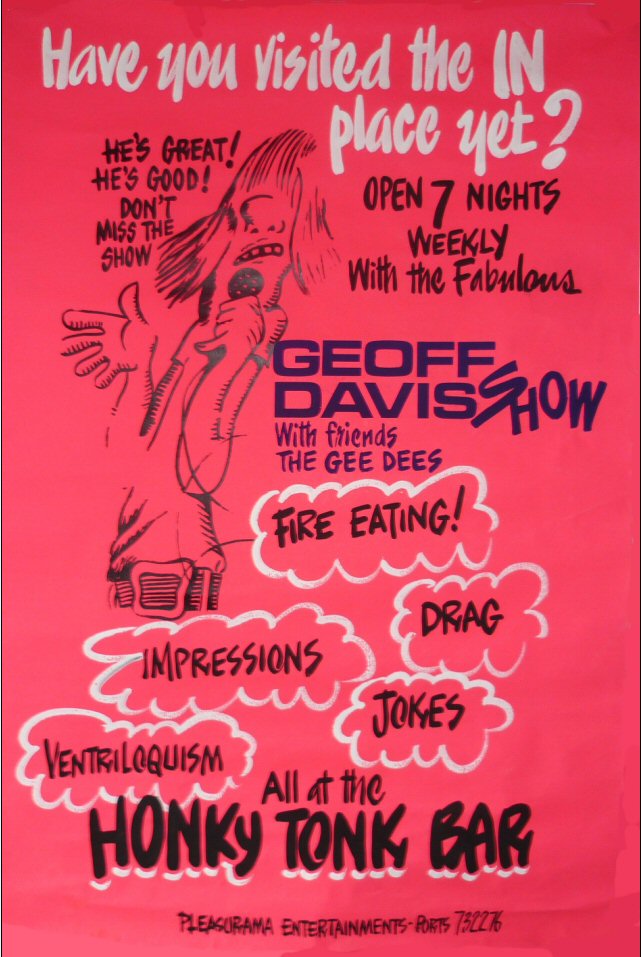 Have you visited the IN
place yet?
HE'S GREAT!
HE'S GOOD!
DON'T
MISS THE
SHOW
OPEN 7 NIGHTS
WEEKLY
With the Fabulous
GEOFF
DAVIS SHOW
With friends
THE GEE DEES
FIRE EATING!
DRAG
IMPRESSIONS
JOKES
VENTRILOQUISM
All at the
HONKY TONK BAR
PLEASURAMA ENTERTAINMENTS-PORTS 732276